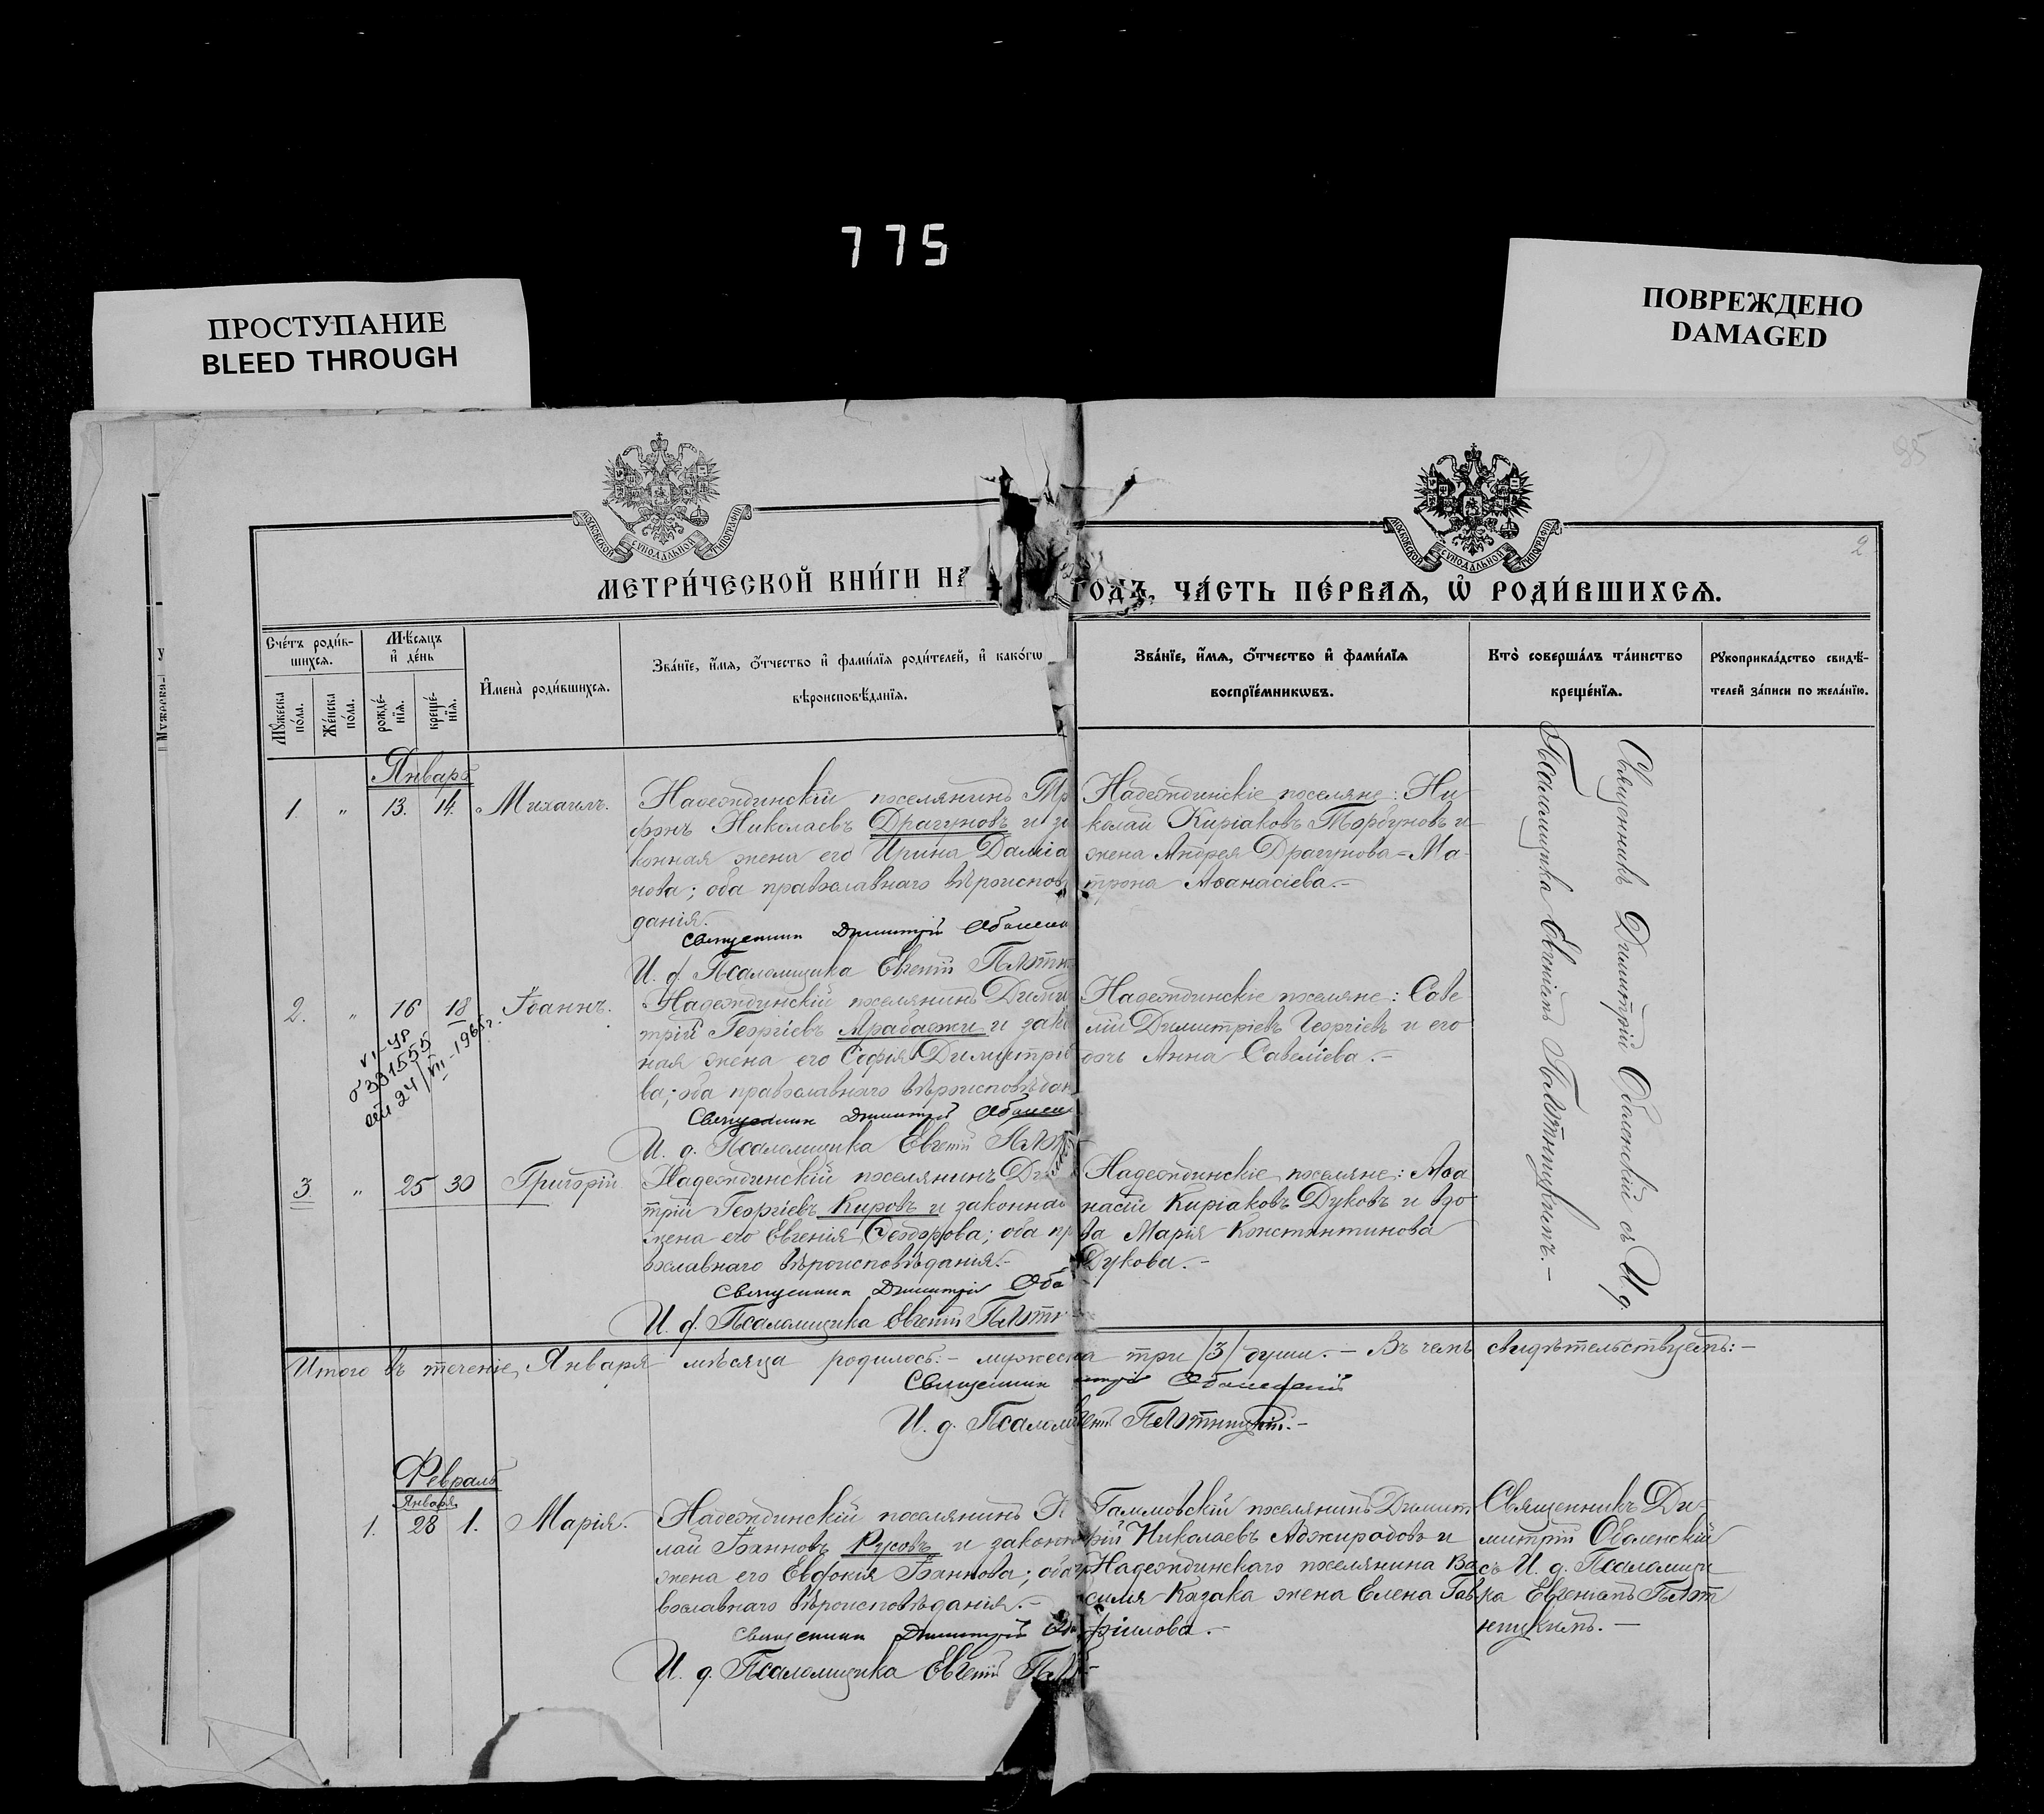 775
ПРОСТУПАНИЕ
BLEED THROUGH
ПОВРЕЖДЕНО
DAMAGED
85
2
МОСКОВСКОЙ СѴНОДАЛЬНОЙ ТИПОГРАФІИ
МОСКОВСКОЙ СѴНОДАЛЬНОЙ ТИПОГРАФІИ
МЕТРИ́ЧЕСКОЙ КНИ́ГИ НА ГОДЪ, ЧА́СТЬ ПЕ́РВАѦ, Ѡ҆ РОДИ́ВШИХСѦ.
Сче́тъ роди́в-
шихсѧ.
Мѣ́сяцъ
и҆ де́нь
Мꙋ́жеска по́ла.
Же́нска по́ла.
рожде́-нїѧ.
креще́-нїѧ.
И҆мена̀ роди́вшихсѧ.
Зва́нїе, и҆́мѧ, ѻ҆́тчество и҆ фами́лїѧ роди́телей, и҆ како́гѡ
вѣроисповѣ́данїѧ.
Зва́нїе, и҆́мѧ, ѻ҆́тчество и҆ фами́лїѧ
воспрїе́мникѡвъ.
Кто̀ соверша́лъ та́инство
креще́нїѧ.
Рꙋкоприкла́дство свидѣ́-
телей за́писи по жела́нїю.
Январь
1. " 13. 14. Михаилъ.
Надеждинскій поселянинъ Тр
фонъ Николаевъ Драгуновъ и за
конная жена его Ирина Даміа
нова; оба православнаго вѣроисповѣ
данія.
Священник Димитрий Оболенс
И. д. Псаломщика Евгеній Пятн
Надеждинскіе поселяне: Ни-
колай Киріаковъ Торбуновъ и
жена Андрея Драгунова - Ма-
трона Аѳанасіева.-
Священникъ Димитрій Оболенскій съ И. д.
Псаломщика Евгеніемъ Пятницкимъ.-
2. " 16 18 Іоаннъ.
VI-УР
331555
24/VII-1965г.
Надеждинскій поселянинъ Дими
трій Георгіевъ Арабаджи и закон
ная жена его Софія Димитріе
ва; оба православнаго вѣроисповѣдан
Священник Димитрий Оболен
И. д. Псаломщика Евгеній Пят
Надеждинскіе поселяне: Саве-
лій Димитріевъ Георгіевъ и его
дочь Анна Савеліева.-
3 " 25 30 Григорій
Надеждинскій поселянинъ Ди
трій Георгіевъ Кировъ и законная
жена его Евгенія Ѳеодорова; оба пр
вославнаго вѣроисповѣданія.-
Священник Димитрий Обо
И. д. Псаломщика Евгеній Пятн
Надеждинскіе поселяне: Аѳа
насій Киріаковъ Дуковъ и вдо
ва Марія Константинова
Дукова.-
Итого въ теченіе Января мѣсяца родилось:- мужеска три /3/ души.- Въ чемъ свидѣтельствуемъ:-
Священник Оболенский
И. д. Псалом Пятницкій.-
Февраль
Января
1. 28 1. Марія.
Надеждинскій поселянинъ Н
лай Іоанновъ Русовъ и законн
жена его Евдокія Іоаннова; оба пр
вославнаго вѣроисповѣданія.-
Священник Димитрий Обо
И. д. Псаломщика Евгеній Пят
Димит
рій Николаевъ Аджирадовъ и
Надеждинскаго поселянина Ва
силія Казака жена Елена Гав
ріилова.-
Священникъ Ди-
митрій Оболенскій
съ И. д. Псаломщи
ка Евгеніемъ Пят
ницкимъ.-